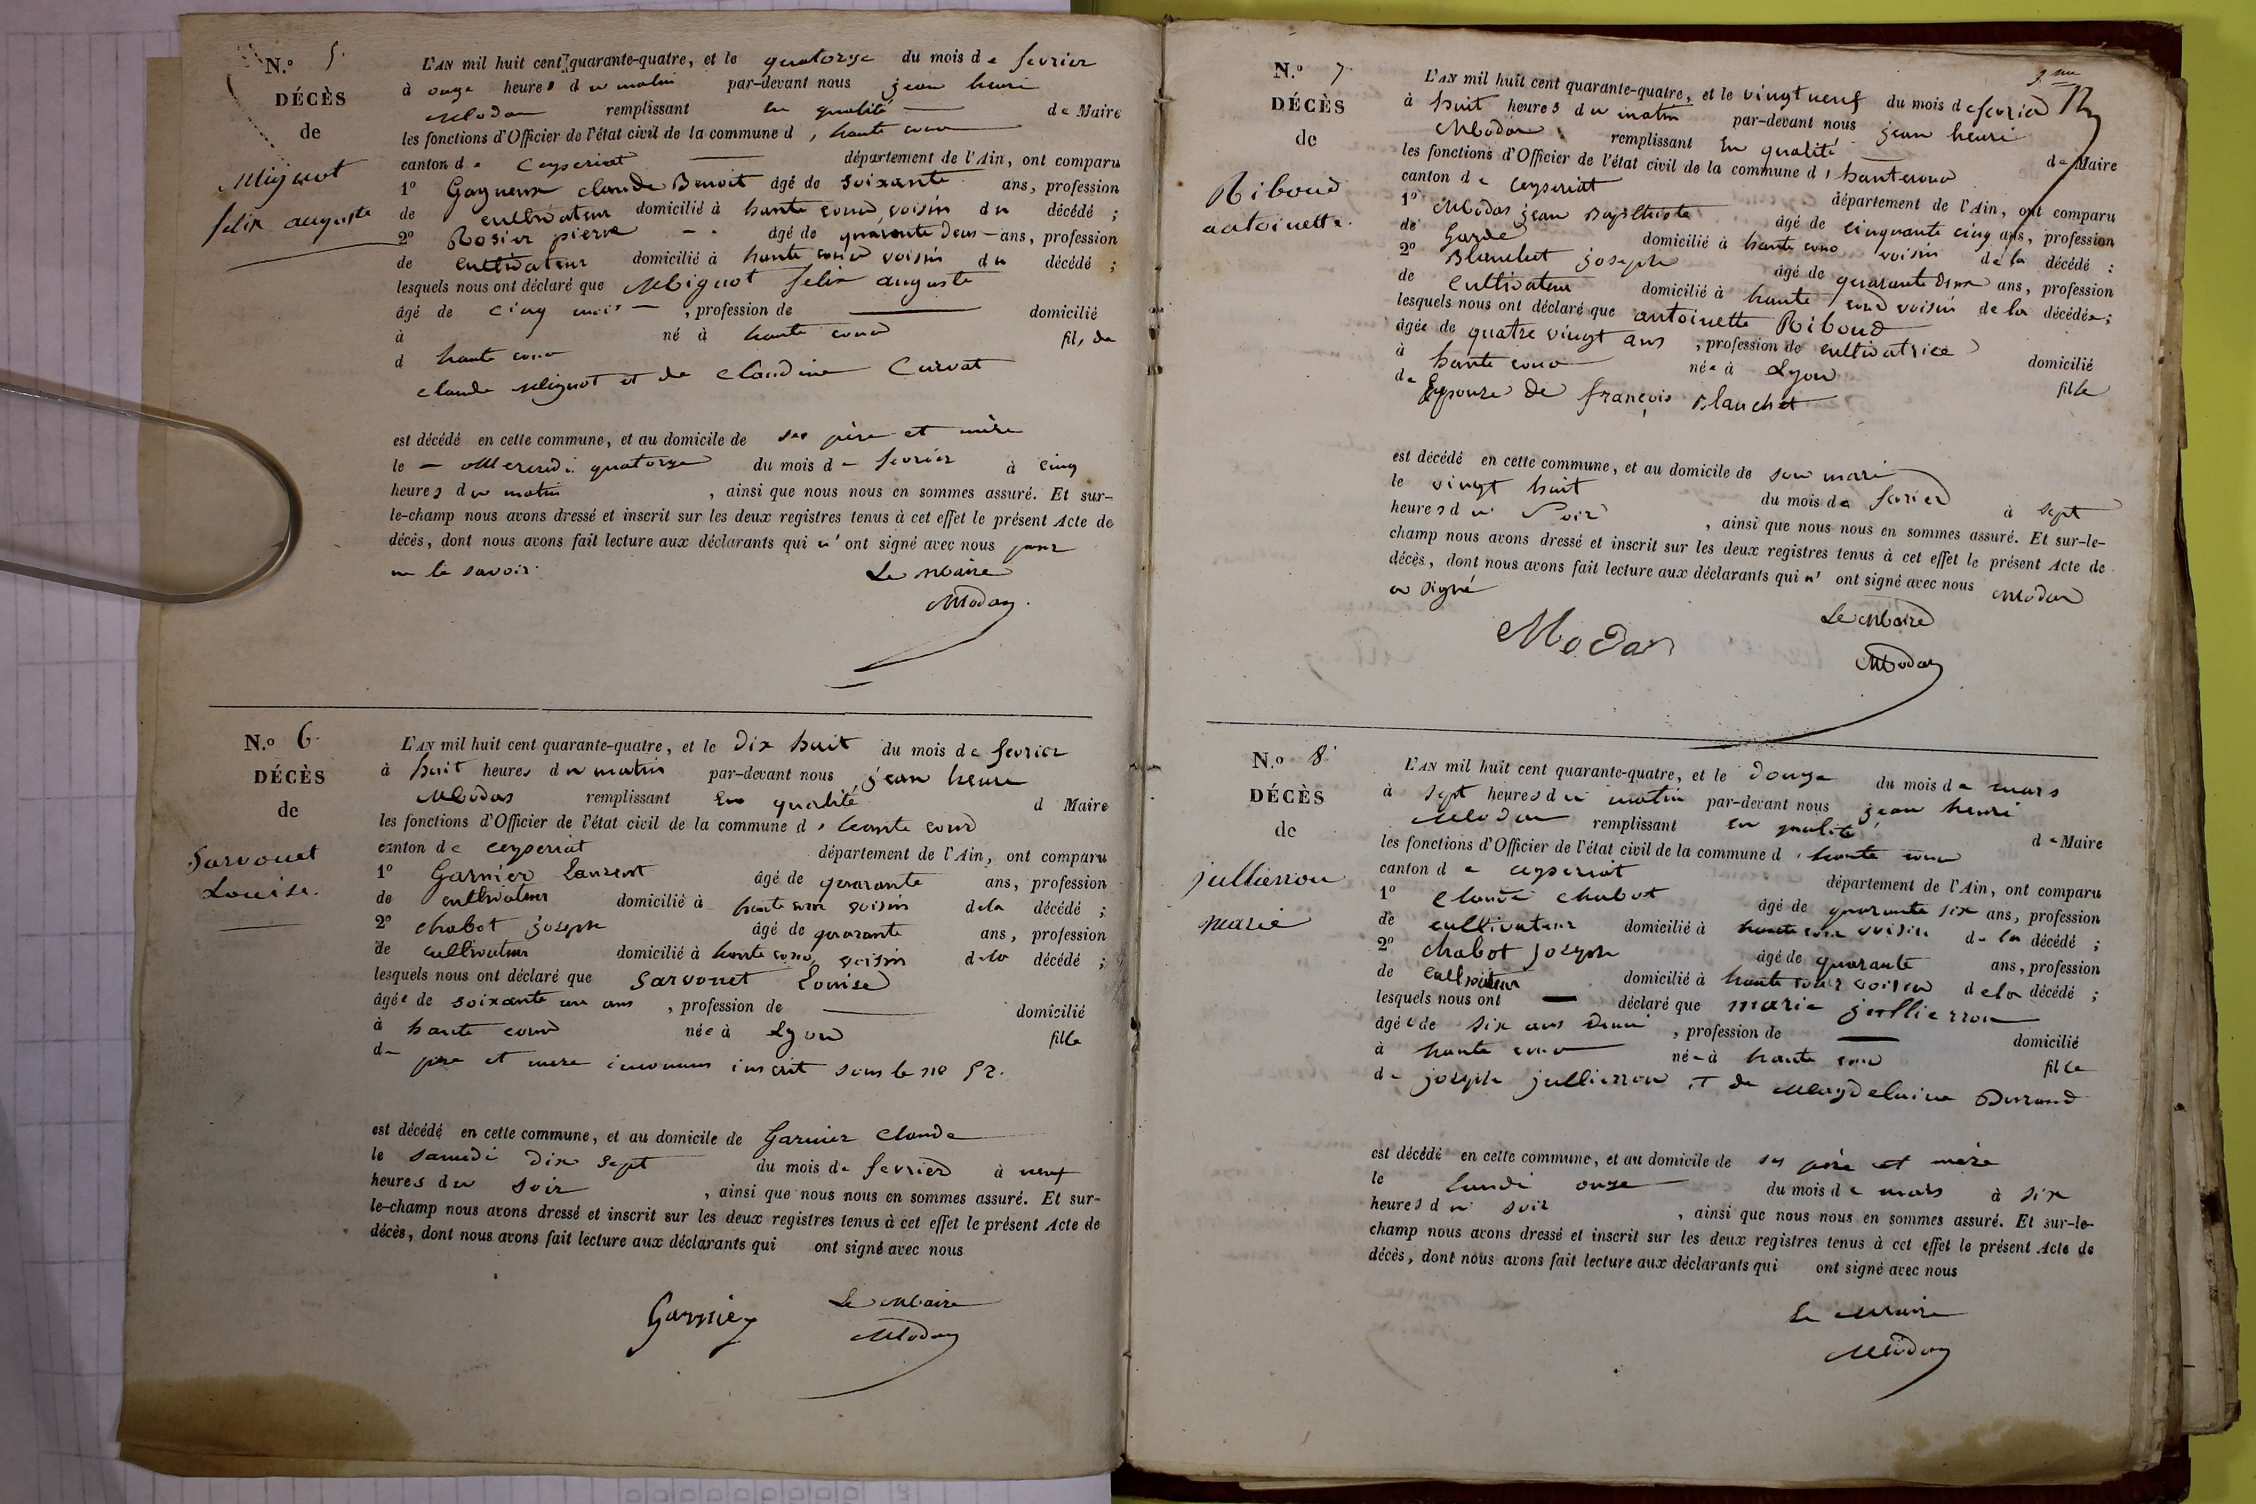 N.º 5.
DÉCÈS
de
Mignot
felix auguste
L'AN mil huit cent quarante-quatre, et le quatorze du mois de fevrier
à onze heures du matin par-devant nous jean henri
Modas remplissant en qualité de Maire
les fonctions d'Officier de l'état civil de la commune d, haute cour
canton de Ceyseriat département de l'Ain, ont comparu
1º Gagneux claude Benoit âgé de soixante ans, profession
de cultivateur domicilié à haute cour voisin du décédé ;
2º Rosier pierre âgé de quarante deux ans, profession
de cultivateur domicilié à haute cour voisin du décédé ;
lesquels nous ont déclaré que Mignot felix auguste
âgé de cinq mois , profession de domicilié
à né à haute cour fils de
d haute cour
claude Mignot et de claudine Curvat
est décédé en cette commune, et au domicile de ses père et mère
le Mercredi quatorze du mois de fevrier à cinq
heures du matin , ainsi que nous nous en sommes assuré. Et sur-
le-champ nous avons dressé et inscrit sur les deux registres tenus à cet effet le présent Acte de
décès, dont nous avons fait lecture aux déclarants qui n'ont signé avec nous pour
ne le savoir.
Le Maire
Modas
N.º 6.
DÉCÈS
de
Sarvouet
Louise.
L'AN mil huit cent quarante-quatre, et le dix huit du mois de fevrier
à huit heures du matin par-devant nous jean henri
Modas remplissant en qualité d Maire
les fonctions d'Officier de l'état civil de la commune d, haute cour
canton de ceyseriat département de l'Ain, ont comparu
1º Garnier Laurent âgé de quarante ans, profession
de cultivateur domicilié à haute cour voisin de la décédé ;
2º chabot joseph âgé de quarante ans, profession
de cultivateur domicilié à haute cour voisin de la décédé ;
lesquels nous ont déclaré que Sarvouet Louise
âgée de soixante un ans , profession de domicilié
à haute cour née à Lyon fille
de père et mere inconnus inscrit sous le nº 52.
est décédé en cette commune, et au domicile de Garnier claude
le samedi dix sept du mois de fevrier à neuf
heures du soir , ainsi que nous nous en sommes assuré. Et sur-
le-champ nous avons dressé et inscrit sur les deux registres tenus à cet effet le présent Acte de
décès, dont nous avons fait lecture aux déclarants qui ont signé avec nous
Garnier
Le Maire
Modas
N.º 7
DÉCÈS
de
Riboud
antoinette.
L'AN mil huit cent quarante-quatre, et le vingt neuf du mois de fevrier
à huit heures du matin par-devant nous jean henri
Modas remplissant en qualité de Maire
les fonctions d'Officier de l'état civil de la commune d, haute cour
canton de ceyseriat département de l'Ain, ont comparu
1º Modas jean Baptiste âgé de cinquante cinq ans, profession
de Garde domicilié à haute cour voisin de la décédé ;
2º Blanchet joseph âgé de quarante deux ans, profession
de cultivateur domicilié à haute cour voisin de la décédée ;
lesquels nous ont déclaré que antoinette Riboud
âgée de quatre vingt ans , profession de cultivatrice domicilié
à haute cour née à Lyon fille
de Epouse de françois Blanchet
est décédé en cette commune, et au domicile de son mari
le vingt huit du mois de fevrier à sept
heures du Soir , ainsi que nous nous en sommes assuré. Et sur-le-
champ nous avons dressé et inscrit sur les deux registres tenus à cet effet le présent Acte de
décès, dont nous avons fait lecture aux déclarants qui n'ont signé avec nous Modas
a signé
Le Maire
Modas
Modas
N.º 8
DÉCÈS
de
jullierron
marie
L'AN mil huit cent quarante-quatre, et le douze du mois de mars
à sept heures du matin par-devant nous jean henri
Modas remplissant en qualité de Maire
les fonctions d'Officier de l'état civil de la commune d, haute cour
canton de ceyseriat département de l'Ain, ont comparu
1º Claude chabot âgé de quarante six ans, profession
de cultivateur domicilié à haute cour voisin de la décédé ;
2º chabot joseph âgé de quarante ans, profession
de cultivateur domicilié à haute cour voisin de la décédé ;
lesquels nous ont déclaré que marie jullierron
âgée de six ans demi , profession de domicilié
à haute cour née à haute cour fille
de joseph jullierron et de Magdelaine Durand
est décédé en cette commune, et au domicile de ses père et mère
le lundi onze du mois de mars à six
heures du soir , ainsi que nous nous en sommes assuré. Et sur-le-
champ nous avons dressé et inscrit sur les deux registres tenus à cet effet le présent Acte de
décès, dont nous avons fait lecture aux déclarants qui ont signé avec nous
Le Maire
Modas